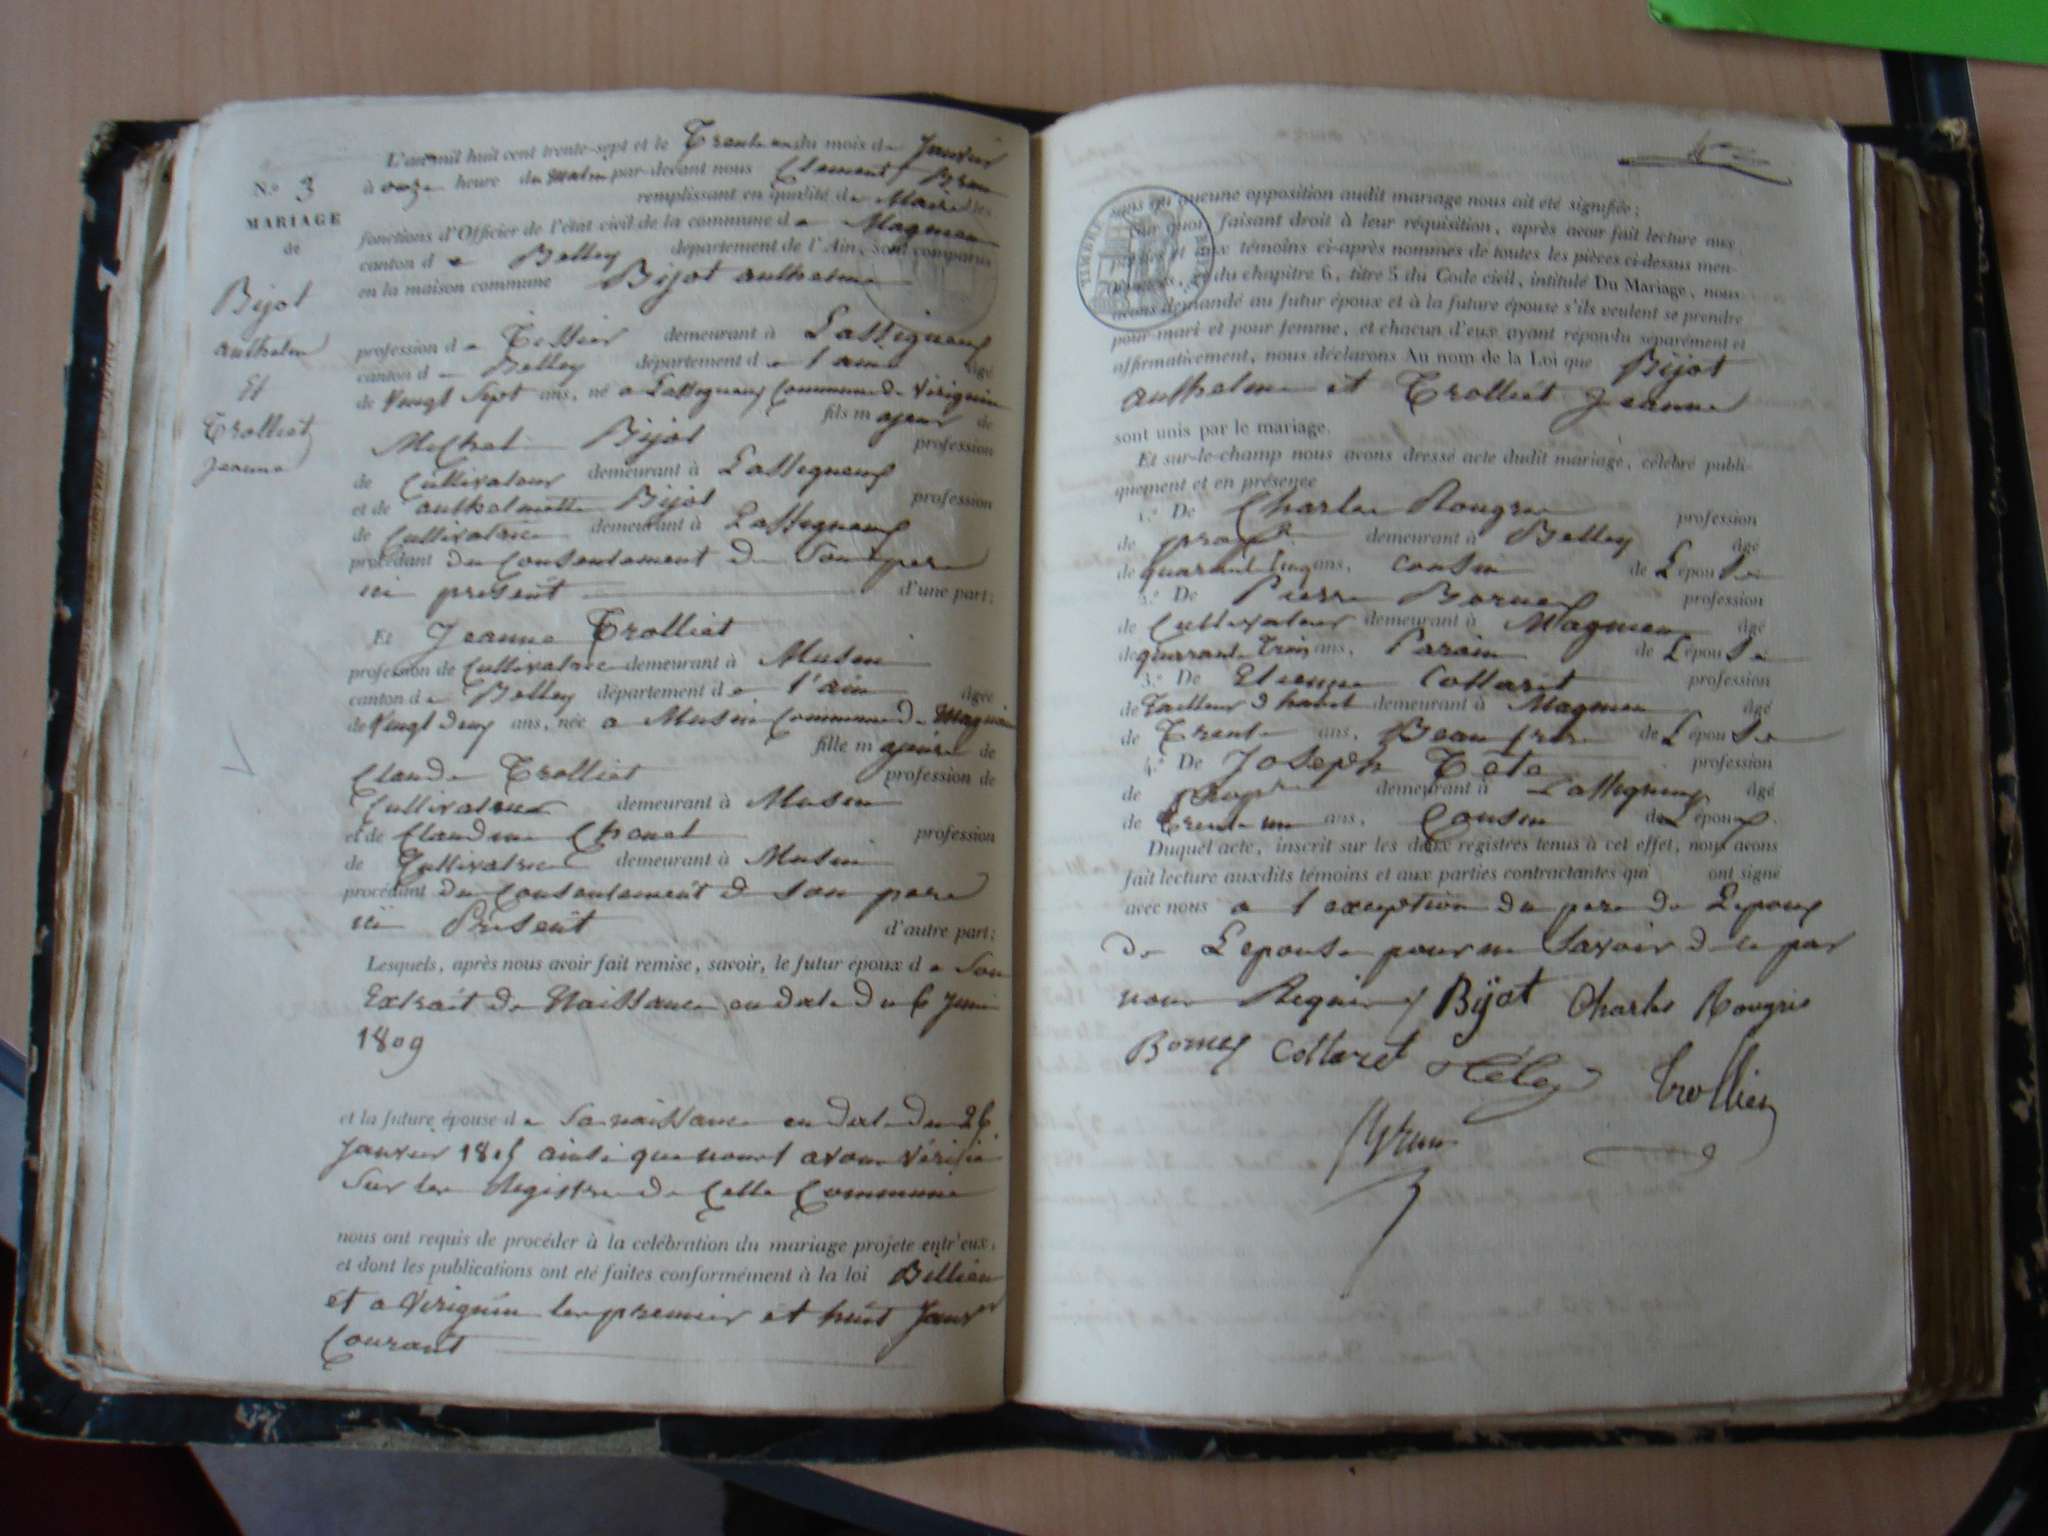 N.º 3
MARIAGE
de
Bijot
anthelme
Et
Trolliet
Jeanne
L'an mil huit cent trente-sept et le Trente un du mois de Janvier
à onze heure du Matin par-devant nous Clement Brun
remplissant en qualité de Maire les
fonctions d'Officier de l'état civil de la commune de Magnieu
canton de Belley département de l'Ain, sont comparus
en la maison commune Bijot anthelme
profession de demeurant à Lassignieux
canton de Belley département de l'ain âgé
de Vingt Sept ans, né a Lassignieux Commune de Virignin
fils majeur de
Michel Bijot profession
de Cultivateur demeurant à Lassignieux
et de anthelmette Bijot profession
de Cultivatrice demeurant à Lassignieux
procédant du Consentement de Son pere
ici présent d'une part;
Et Jeanne Trolliet
profession de Cultivatrice demeurant à Musin
canton de Belley département de l'ain âgée
de Vingt deux ans, née a Musin Commune de Magnieu
fille majeure de
Claude Trolliet profession de
Cultivateur demeurant à Musin
et de Claudine Chonet profession
de Cultivatrice demeurant à Musin
procédant du Consentement de Son pere
ici Présent d'autre part;
Lesquels, après nous avoir fait remise, savoir, le futur époux de Son
Extrait de Naissance en date du 6 Juin
1809
et la future épouse de Sa naissance en date du 26
Janvier 1815 ainsi que nous l avons Vérifié
Sur les Registres de Cette Commune
nous ont requis de procéder à la célébration du mariage projeté entr'eux,
et dont les publications ont été faites conformément à la loi Billieu
et a Virignin les premier et huit Janvier
Courant
TIMBRE
sans qu'aucune opposition audit mariage nous ait été signifiée;
Sur quoi, faisant droit à leur réquisition, après avoir fait lecture aux
parties et aux témoins ci-après nommés de toutes les pièces ci-dessus men-
tionnées, et du chapitre 6, titre 5 du Code civil, intitulé Du Mariage, nous
avons demandé au futur époux et à la future épouse s'ils veulent se prendre
pour mari et pour femme, et chacun d'eux ayant répondu séparément et
affirmativement, nous déclarons Au nom de la Loi que Bijot
anthelme et Trolliet Jeanne
sont unis par le mariage.
Et sur-le-champ nous avons dressé acte dudit mariage, célébré publi-
quement et en présence
1.º De Charles Rougrie profession
de prop.re demeurant à Belley âgé
de quarante Cinq ans, Cousin de L'épouse
2.º De Pierre Bornex profession
de Cultivateur demeurant à Magnieu âgé
de quarante Trois ans, Parain de L'épouse
3.º De Etienne Cottaret profession
de Tailleur d'habit demeurant à Magnieu âgé
de Trente ans, Beau frere de L'épouse
4.º De Joseph Tete profession
de prop.re demeurant à Lassignieux âgé
de Trente un ans, Cousin de L'époux.
Duquel acte, inscrit sur les deux registres tenus à cet effet, nous avons
fait lecture auxdits témoins et aux parties contractantes qui ont signé
avec nous a l exception du pere de L'epoux
de L'epouse pour ne Savoir de ce par
nous Requis Bijot Charles Rougrie
Bornex Cottaret Trolliet
Brun